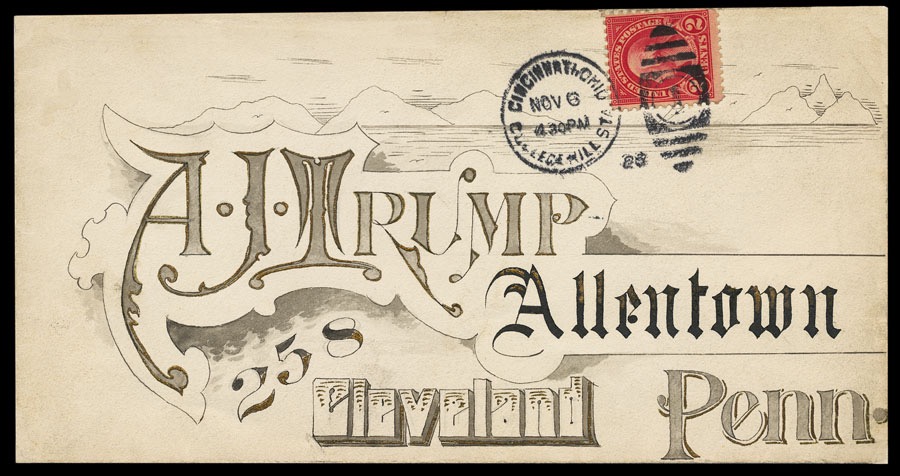 UNITED STATES POSTAGE
2 CENTS 2
CINCINNATI, OHIO
NOV 6
4:30 PM
COLLEGE HILL STA.
23
A. J. TRUMP
Allentown
258
Cleveland Penn.